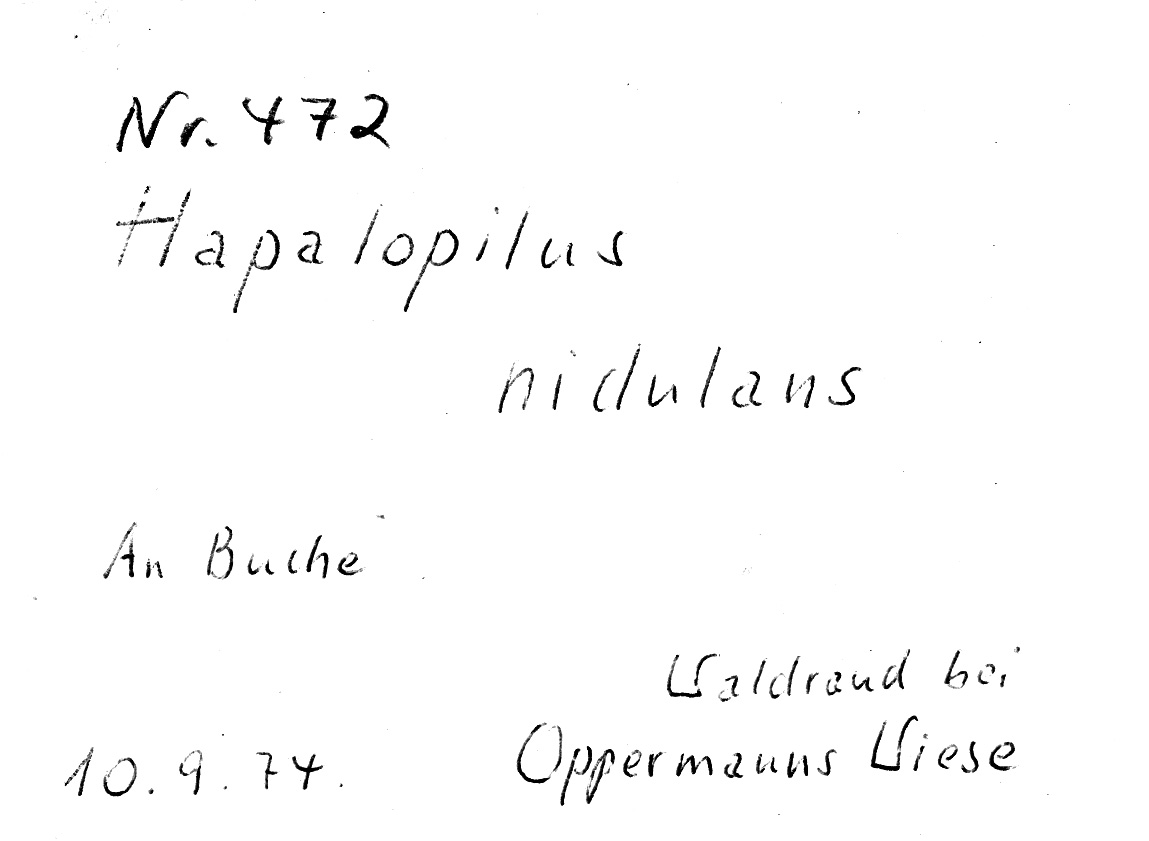 Nr. 472
Hapalopilus
nidulans
An Buche
Waldrand bei
10.9.74. Oppermanns Wiese